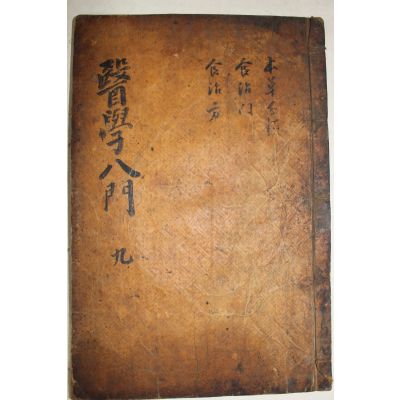 本草
食治門
食治方
醫學八門 九